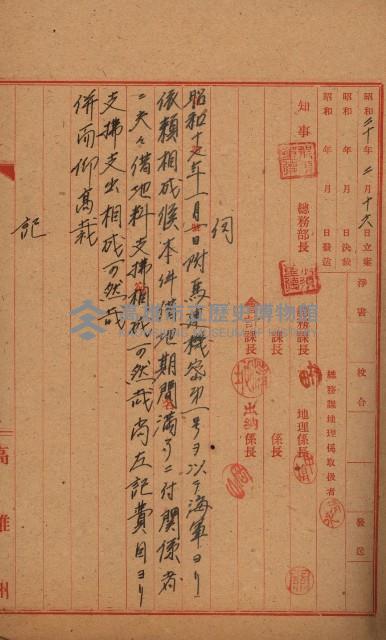 昭和二十年二月十六日立案
昭和　年　月　日決裁
昭和　年　月　日發送
淨書
校合
發送
總務課地理係取扱者
知事
總務部長
總務課長
地理係長
會計課長
課長
係長
出納係長
伺
昭和十九年一月　日附馬　機密第　號ヲ以テ海軍ヨリ
依賴相成候本件借地期間滿了ニ付關係者
ニ夫々借地料支拂相成可然哉尚左記費目ヨリ
支拂支出相成可然哉
併而仰高裁
記
高雄州
高雄市立歷史博物館
KAOHSIUNG MUSEUM OF HISTORY